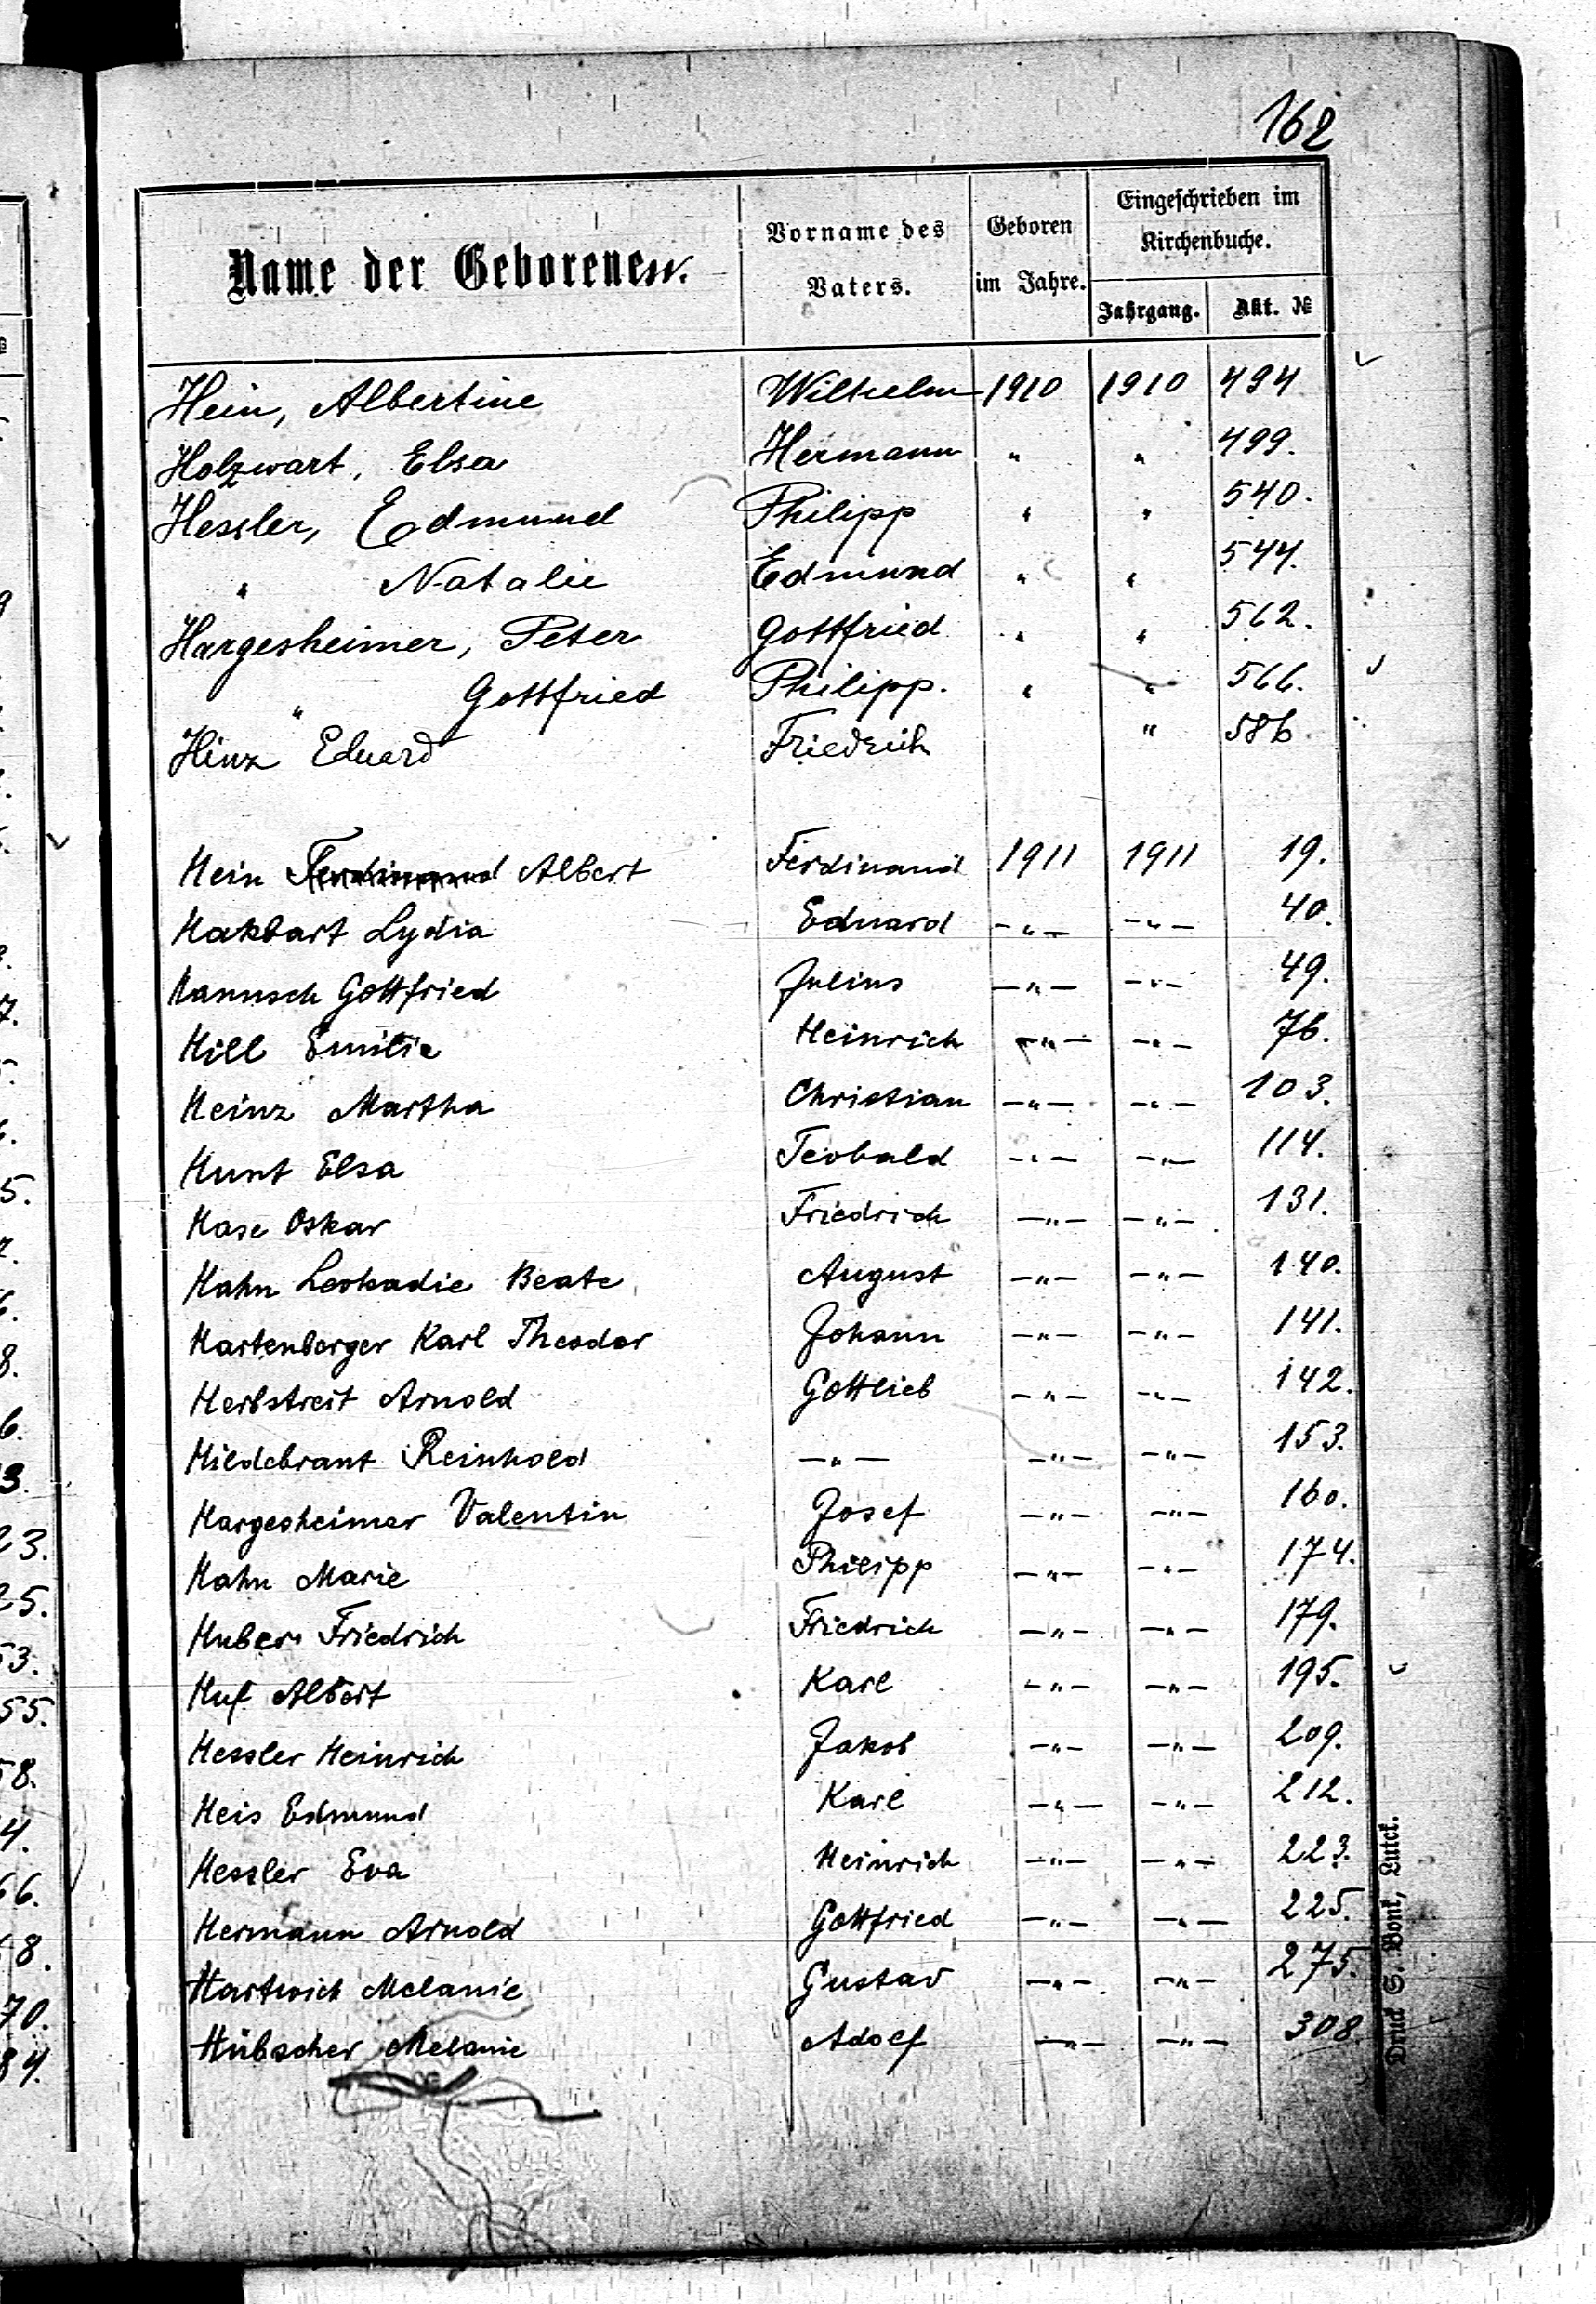 162
Name der Geborenen.
Vorname des Vaters.
Geboren im Jahre.
Eingeschrieben im Kirchenbuche.
Jahrgang. Akt. №
Hein, Albertine Wilhelm 1910 1910 494
Holzwart, Elsa Hermann " " 499.
Hessler, Edmund Philipp " " 540.
" Natalie Edmund " " 544.
Hargesheimer, Peter Gottfried " " 562.
" Gottfried Philipp. " " 566.
Hinz Eduard Friedrich " 586.
Hein Ferdinand Albert Ferdinand 1911 1911 19.
Hakbart Lydia Eduard -"- -"- 40.
Hannsch Gottfried Julius -"- -"- 49.
Hill Emilie Heinrich -"- -"- 76.
Heinz Martha Christian -"- -"- 103.
Hunt Elsa Teobald -"- -"- 114.
Hase Oskar Friedrich -"- -"- 131.
Hahn Leokadie Beate August -"- -"- 140.
Hartenberger Karl Theodor Johann -"- -"- 141.
Herbstreit Arnold Gottlieb -"- -"- 142.
Hildebrant Reinhold -"- -"- -"- 153.
Hargesheimer Valentin Josef -"- -"- 160.
Hahn Marie Philipp -"- -"- 174.
Huber Friedrich Friedrich -"- -"- 179.
Huf Albert Karl -"- -"- 195.
Hessler Heinrich Jakob -"- -"- 209.
Heis Edmund Karl -"- -"- 212.
Hessler Eva Heinrich -"- -"- 223.
Hermann Arnold Gottfried -"- -"- 225.
Hartwich Melanie Gustav -"- -"- 275.
Hübscher Melanie Adolf -"- -"- 308
Druck S. Bonk, Lutck.